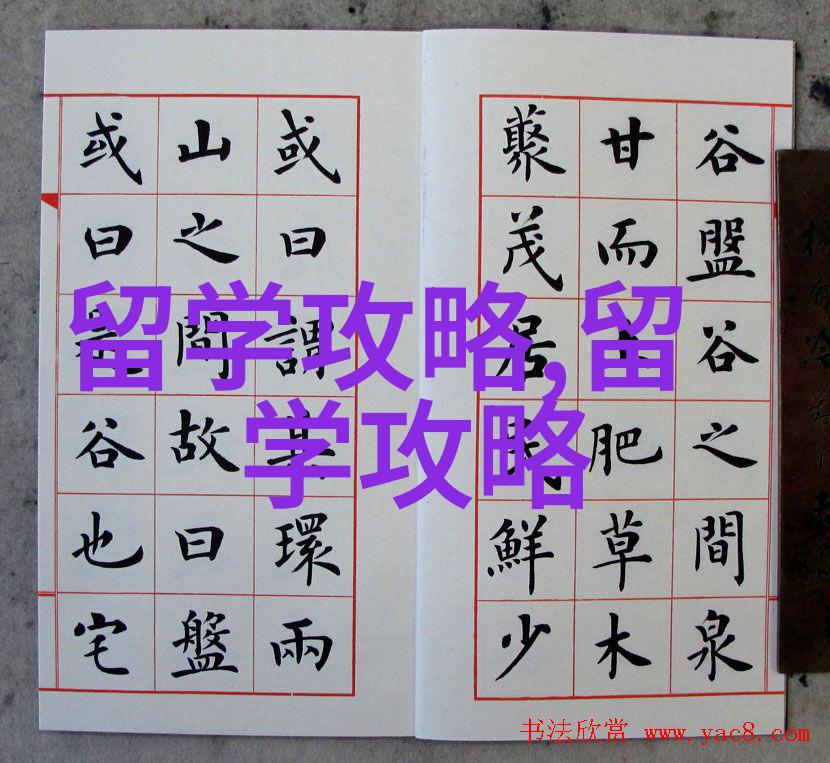 谷盤谷之間泉
甘而土肥草木
藂茂居民鮮少
或曰謂其環兩
山之間故曰盤
或曰是谷也宅
留学攻略,留
学攻略
书法欣赏 www.yac8.com